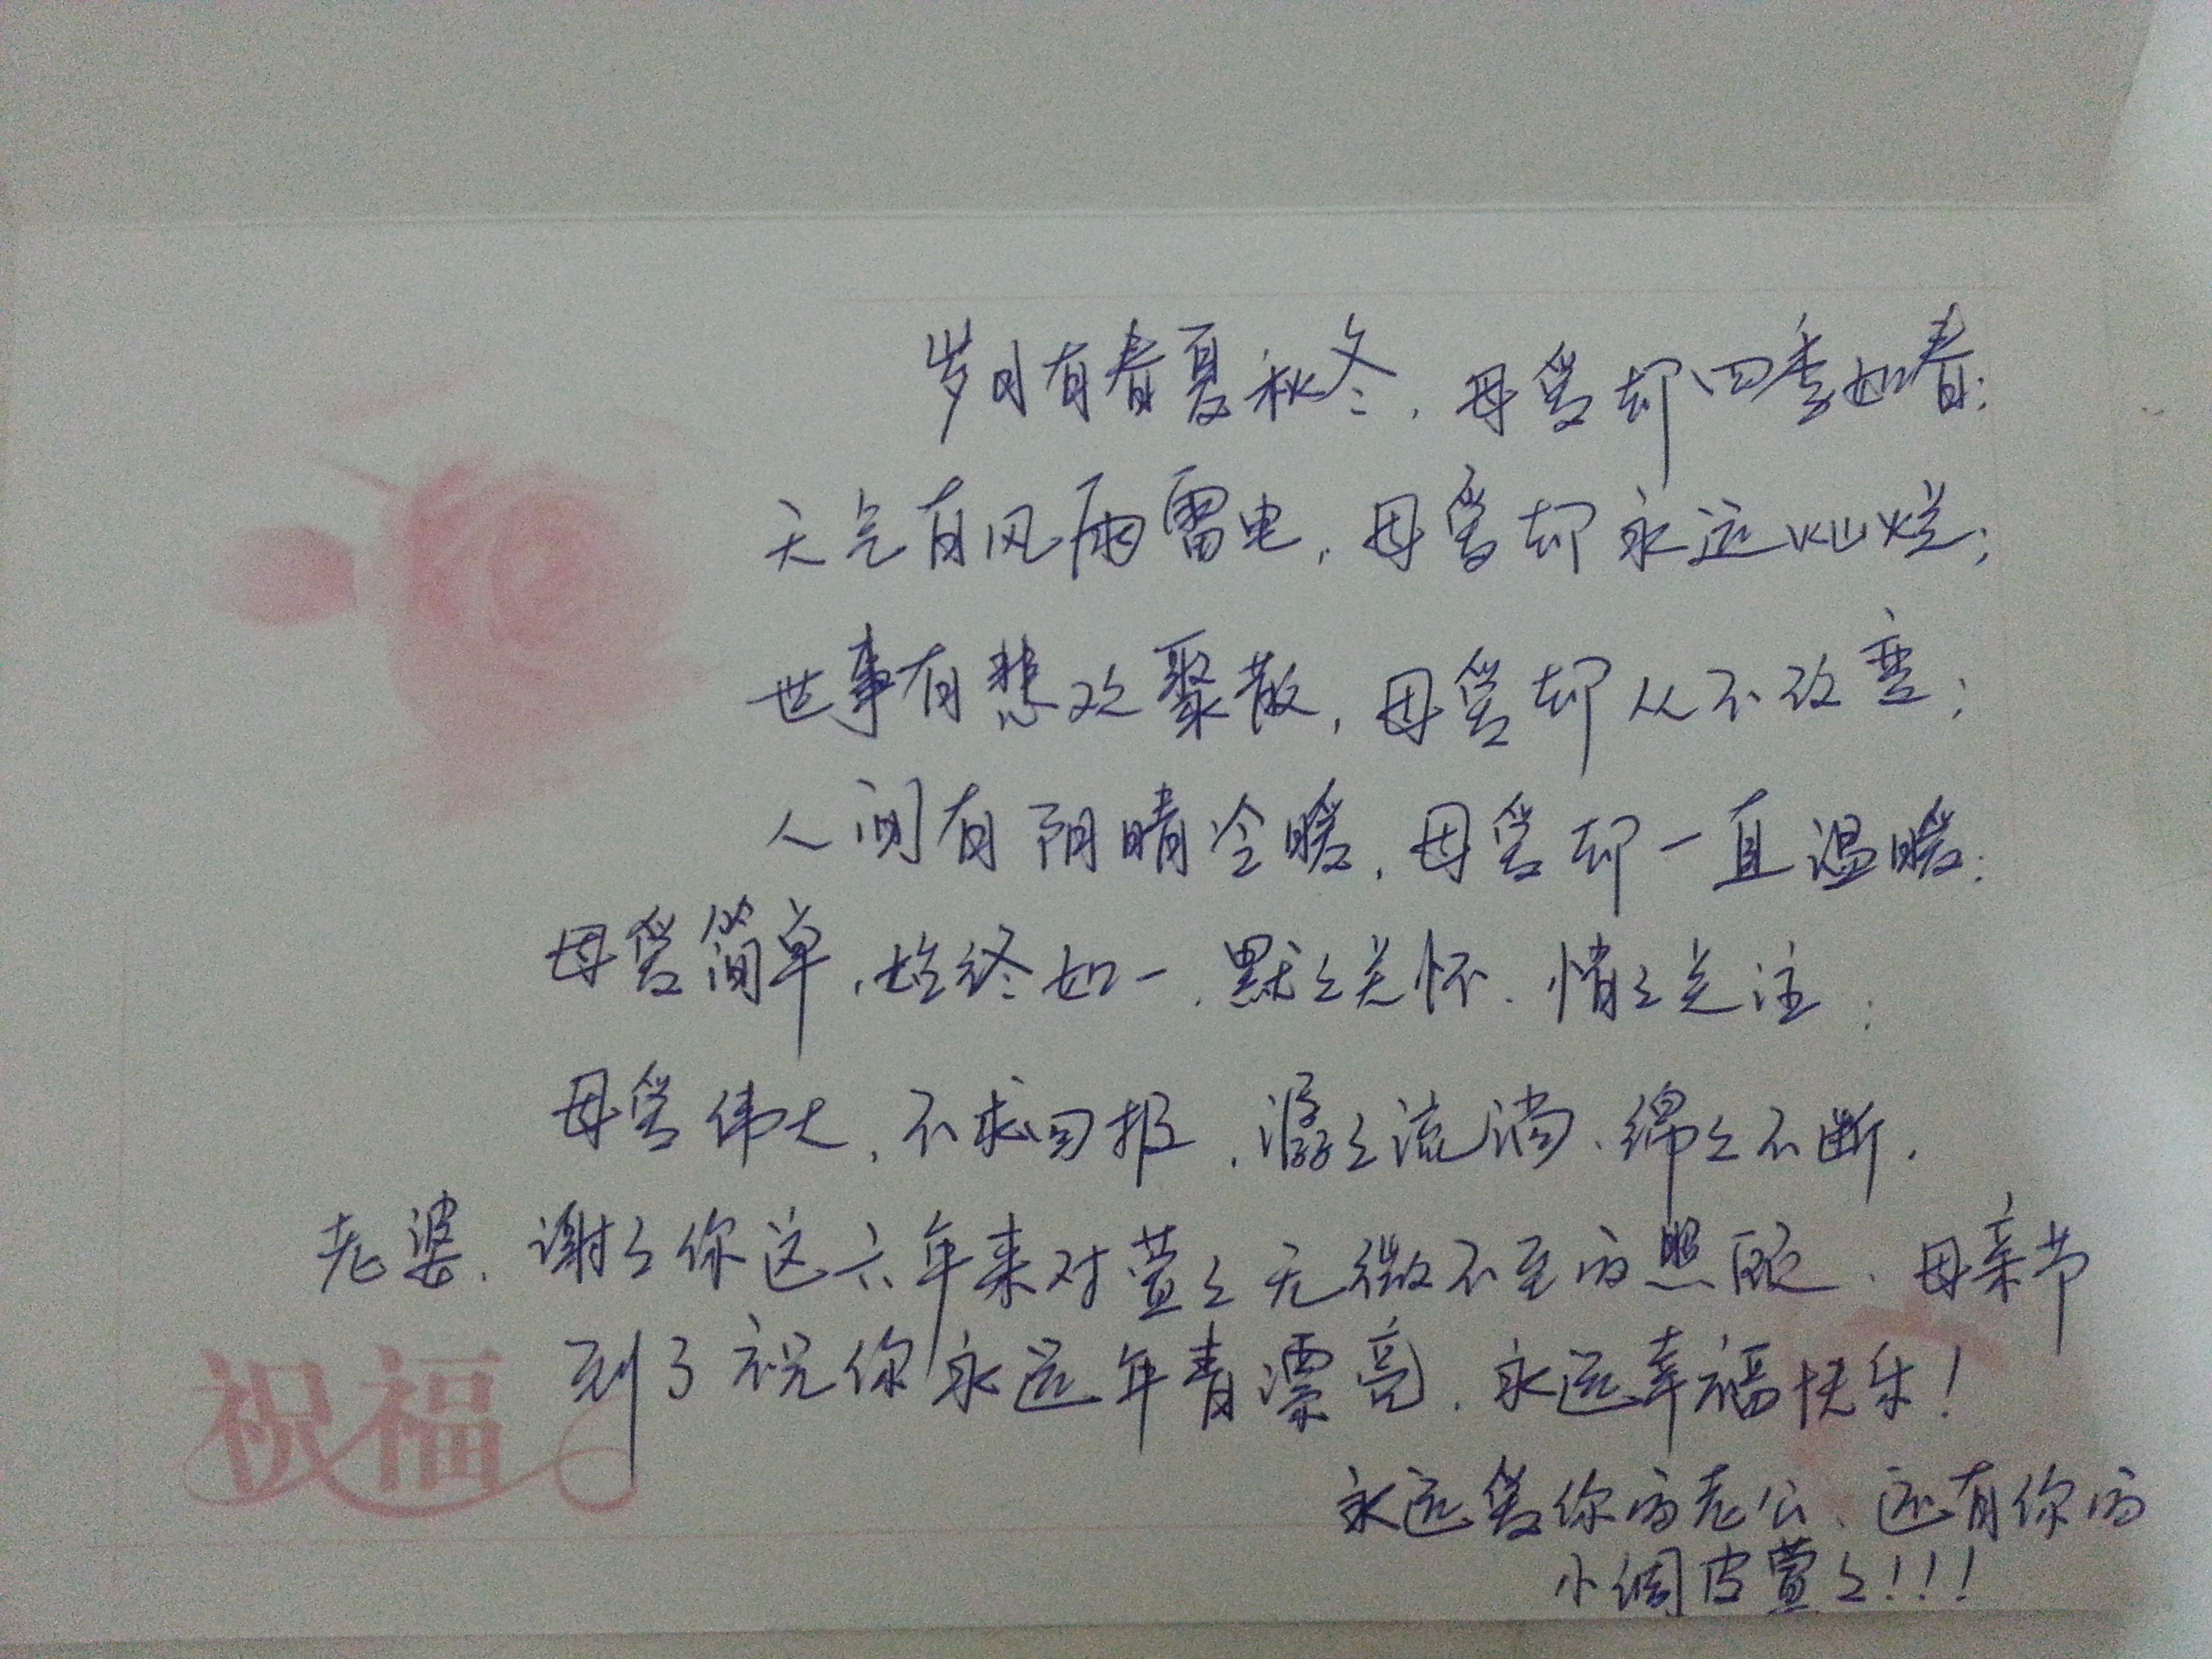 岁月有春夏秋冬，母爱却四季如春；
天气有风雨雷电，母爱却永远灿烂；
世事有悲欢聚散，母爱却从不改变；
人间有阴晴冷暖，母爱却一直温暖；
母爱简单，始终如一，默默关怀、悄悄关注；
母爱伟大，不求回报，潺潺流淌、绵绵不断。
老婆、谢谢你这六年来对萱萱无微不至的照顾、母亲节
到了祝你永远年青漂亮、永远幸福快乐！
永远爱你的老公、还有你的
小调皮萱萱！！！
祝福